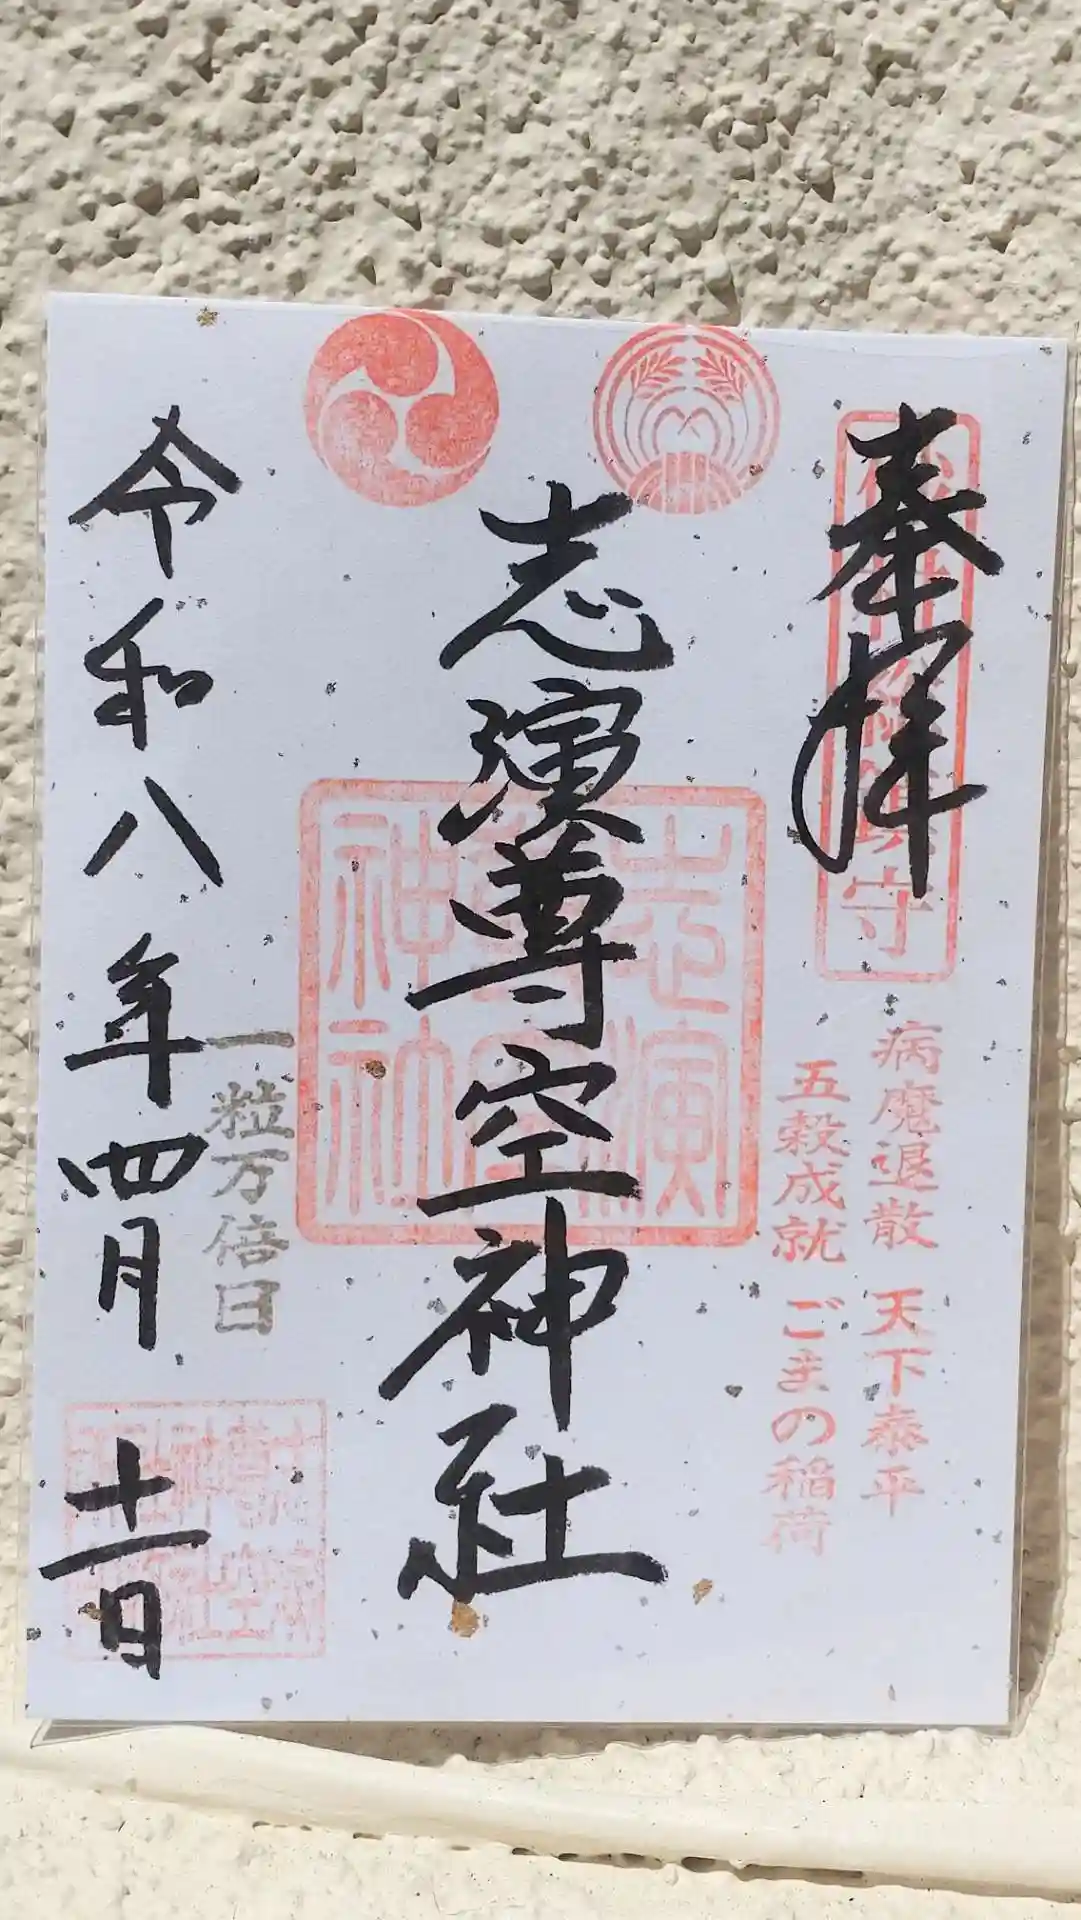 奉拝
病魔退散 天下泰平
五穀成就 ごまの稲荷
志演尊空神社
志演
神社
一粒万倍日
令和八年四月十一日